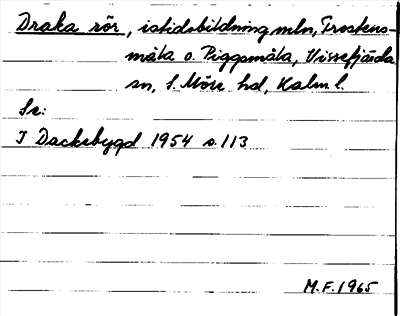 Draka rör, istidsbildning mln, Froskens-
måla o. Piggsmåla, Vissefjärda
sn, S. Möre hd, Kalm l.
Se:
I Dackebygd 1954 s. 113
M.F. 1965